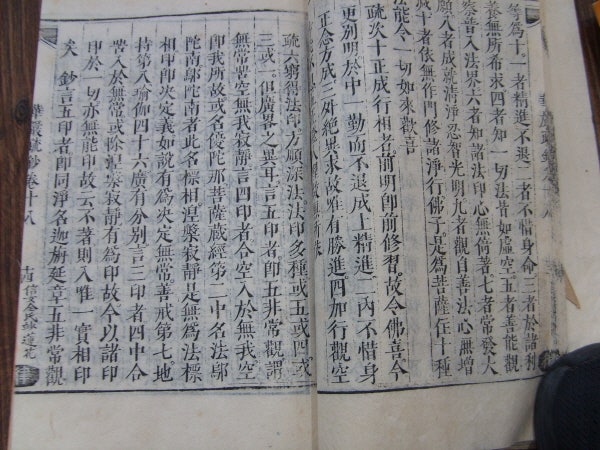 等為十一者精進不退二者不惜身命三者於諸利
養無所希求四者知一切法皆如虛空五者善能觀
察普入法界六者知諸法印心無倚著七者常發大
願八者成就清淨忍智光明九者觀自善法心無增
減十者依無作門修諸淨行佛子是為菩薩住十種
法能令一切如來歡喜
疏次十正成行相名前明即前修習故令佛喜今
更別明於中一勤而不退成上精進二內不惜身
疏六窮得法印方順深法法印多種或五或四或
三或一但廣畧之異耳言五印者即五非常觀謂
無常苦空無我寂靜言四印者合空入於無我空
即我所故或名優陀那菩薩藏經第二中名法鄔
陀南鄔陀南者此名標相涅槃寂靜是無為法標
相印即決定義如說有為決定無常善戒第七地
持第八瑜伽四十六廣有分別言三印者四中合
苦入於無常或除涅槃寂靜有為印故今以諸印
印於一切亦無能印故云不著則入唯一實相印
矣 鈔言五印者即同淨名迦旃延章五非常觀
華嚴疏鈔卷十八